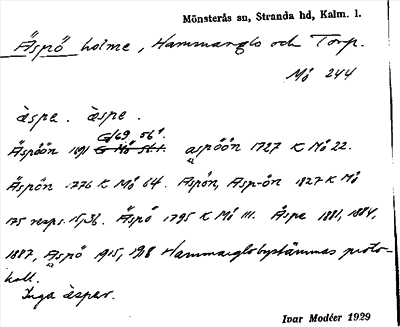 Mönsterås sn, Stranda hd, Kalm. l.
Äspö holme, Hammarglo och Torp.
Mö 244
äspe. äspe.
G/69 56¹.
Äspöön 1691 G Mö aspöön 1727 K Mö 22.
Äspön 1776 K Mö 64. Aspön, Asp-ön 1827 K Mö
175 resp. 15, 36. Äspö 1795 K Mö 111. Äspe 1881, 1884,
1887, Aspö 1915, 1918 Hammarglobystämmas proto-
koll.
Inga äspar.
Ivar Modéer 1929